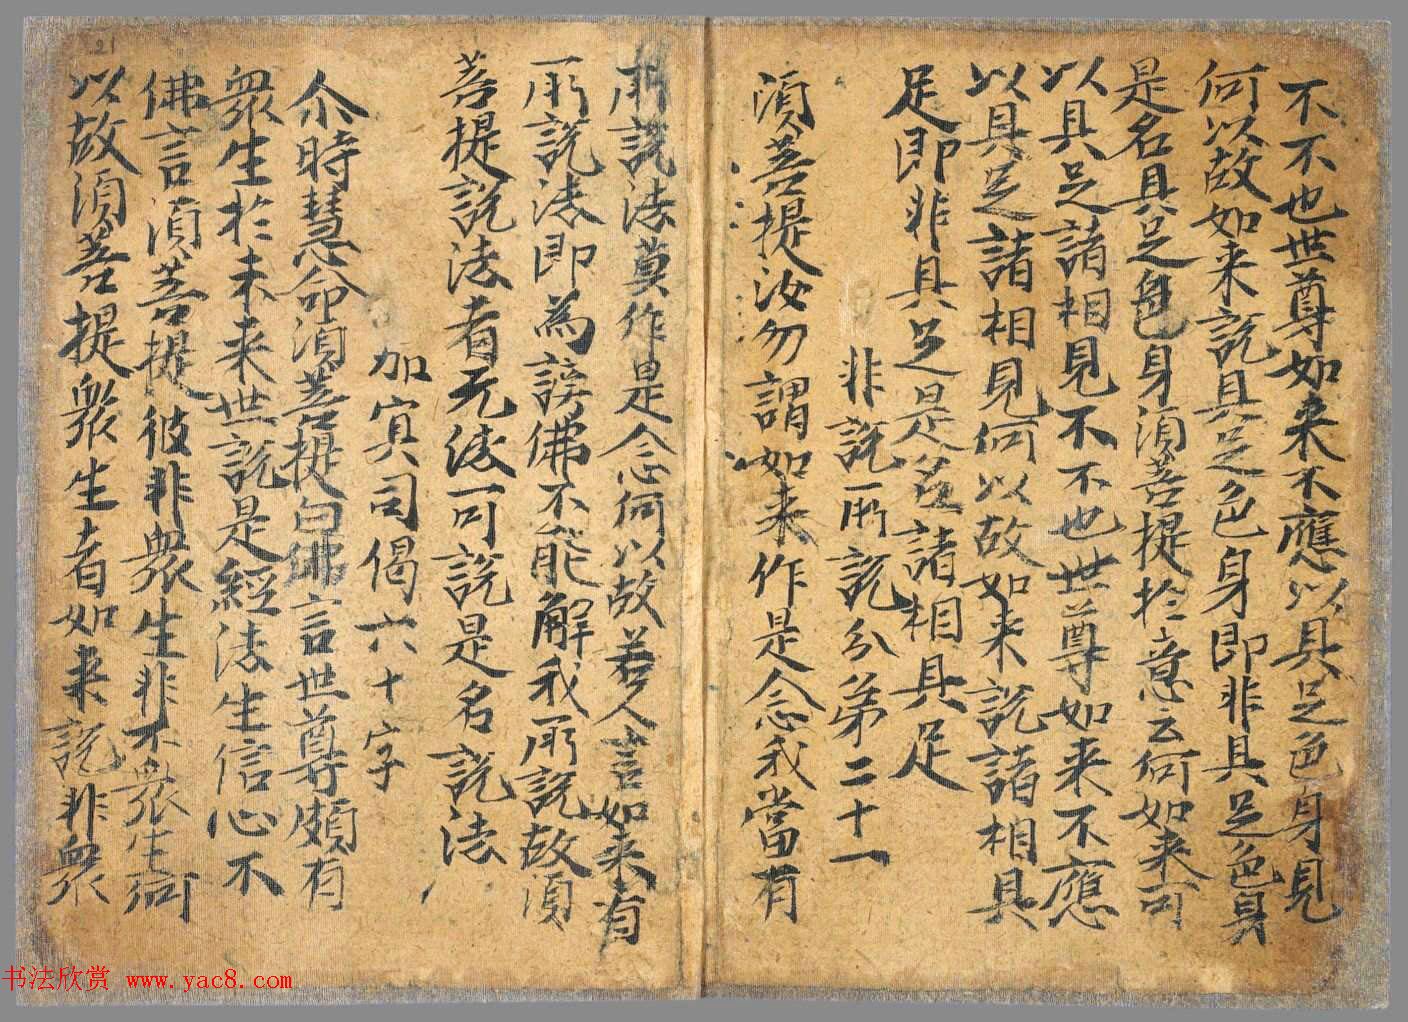 不不也世尊如来不應以具足色身見
何以故如来說具足色身即非具足色身
是名具足色身須菩提於意云何如来可
以具足諸相見不不也世尊如来不應
以具足諸相見何以故如来說諸相具
足即非具足是名諸相具足
非說所說分第二十一
須菩提汝勿謂如来作是念我當有
所說法莫作是念何以故若人言如来有
所說法即為謗佛不能解我所說故須
菩提說法者无法可說是名說法
加冥司偈六十字
尒時慧命須菩提白佛言世尊頗有
衆生於未来世說是經法生信心不
佛言須菩提彼非衆生非不衆生何
以故須菩提衆生者如来說非衆
21
书法欣赏 www.yac8.com